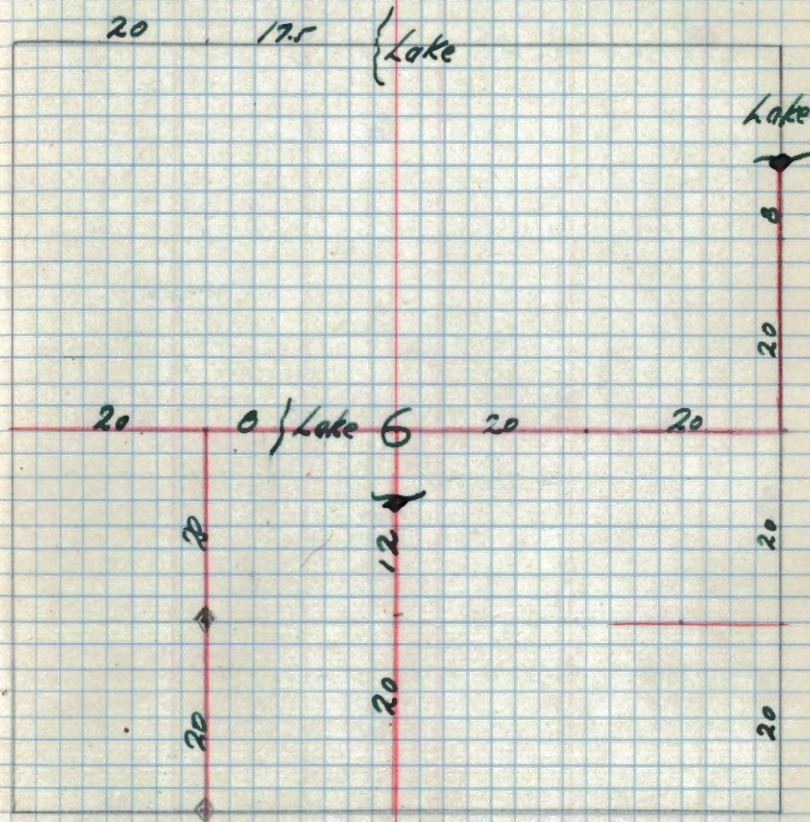 20 17.5 Lake
Lake
8
20
20 8 Lake 6 20 20
20 12 20
20 20 20